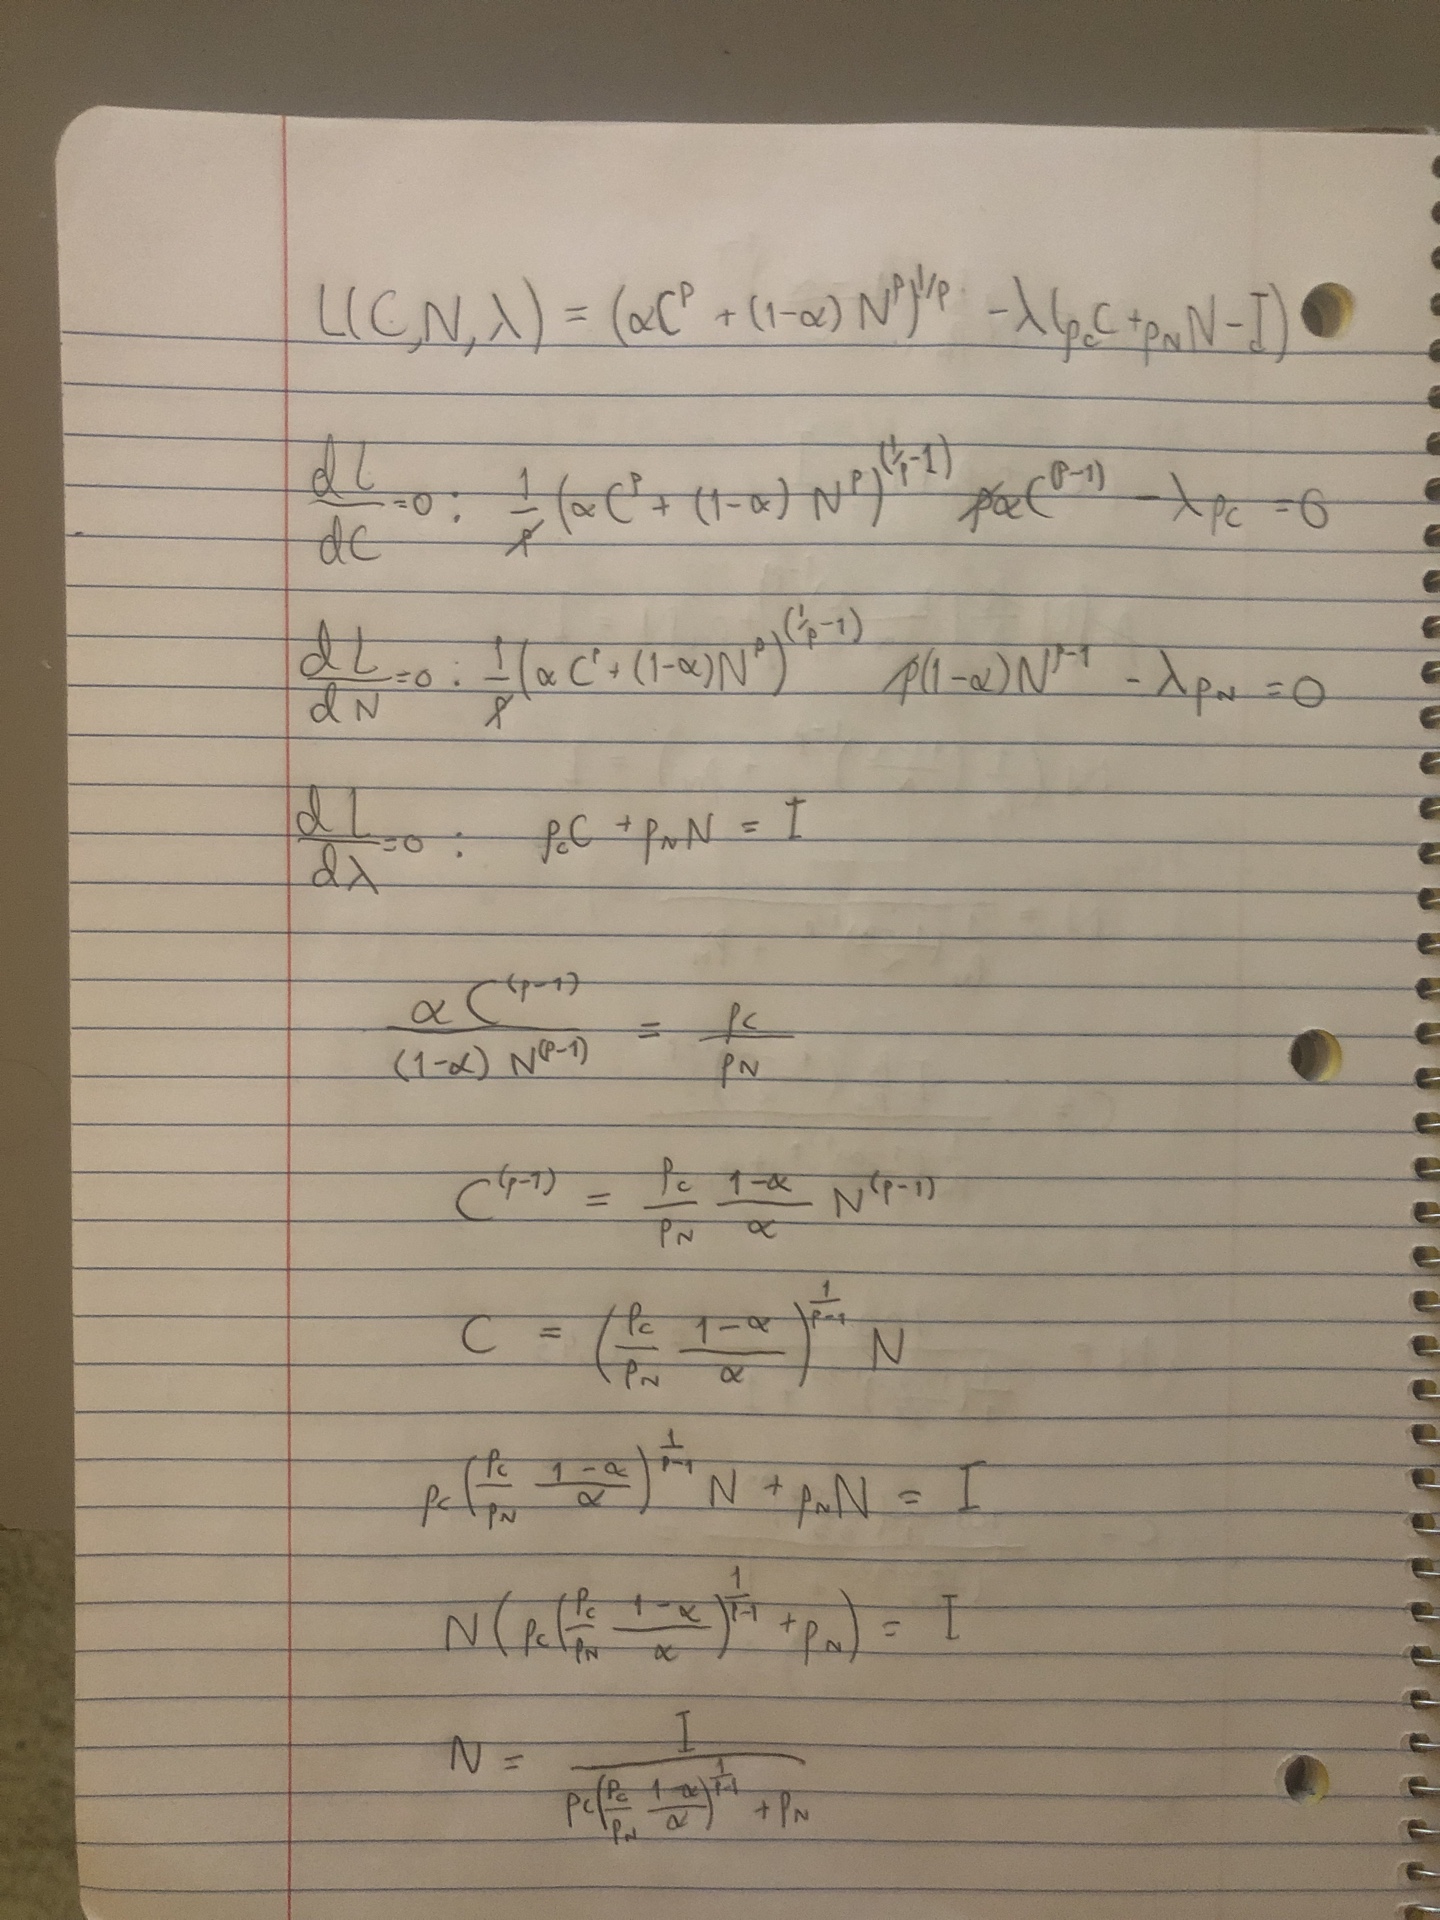 L(C,N,λ) = (αC^ρ + (1-α) N^ρ)^{1/ρ} - λ(p_C C + p_N N - I)
dL/dC =0 : 1/ρ (αC^ρ + (1-α) N^ρ)^{(1/ρ-1)} ραC^{(ρ-1)} - λp_C = 0
dL/dN =0 : 1/ρ (αC^ρ + (1-α)N^ρ)^{(1/ρ-1)} ρ(1-α)N^{ρ-1} - λp_N = 0
dL/dλ =0 : p_C C + p_N N = I
αC^{(ρ-1)} / (1-α) N^{(ρ-1)} = p_C / p_N
C^{(ρ-1)} = p_C/p_N 1-α/α N^{(ρ-1)}
C = (p_C/p_N 1-α/α)^{1/ρ-1} N
p_C (p_C/p_N 1-α/α)^{1/ρ-1} N + p_N N = I
N(p_C(p_C/p_N 1-α/α)^{1/ρ-1} + p_N) = I
N = I / p_C(p_C/p_N 1-α/α)^{1/ρ-1} + p_N